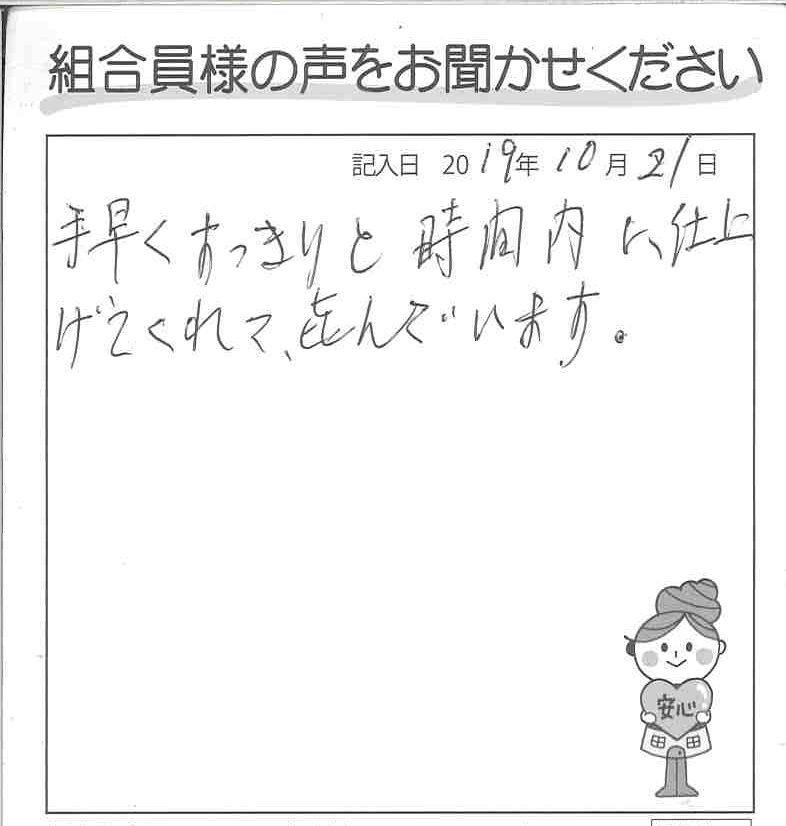 組合員様の声をお聞かせください
記入日 2019年10月21日
手早くすっきりと時間内に、仕上
げてくれて、喜んでいます。
安心